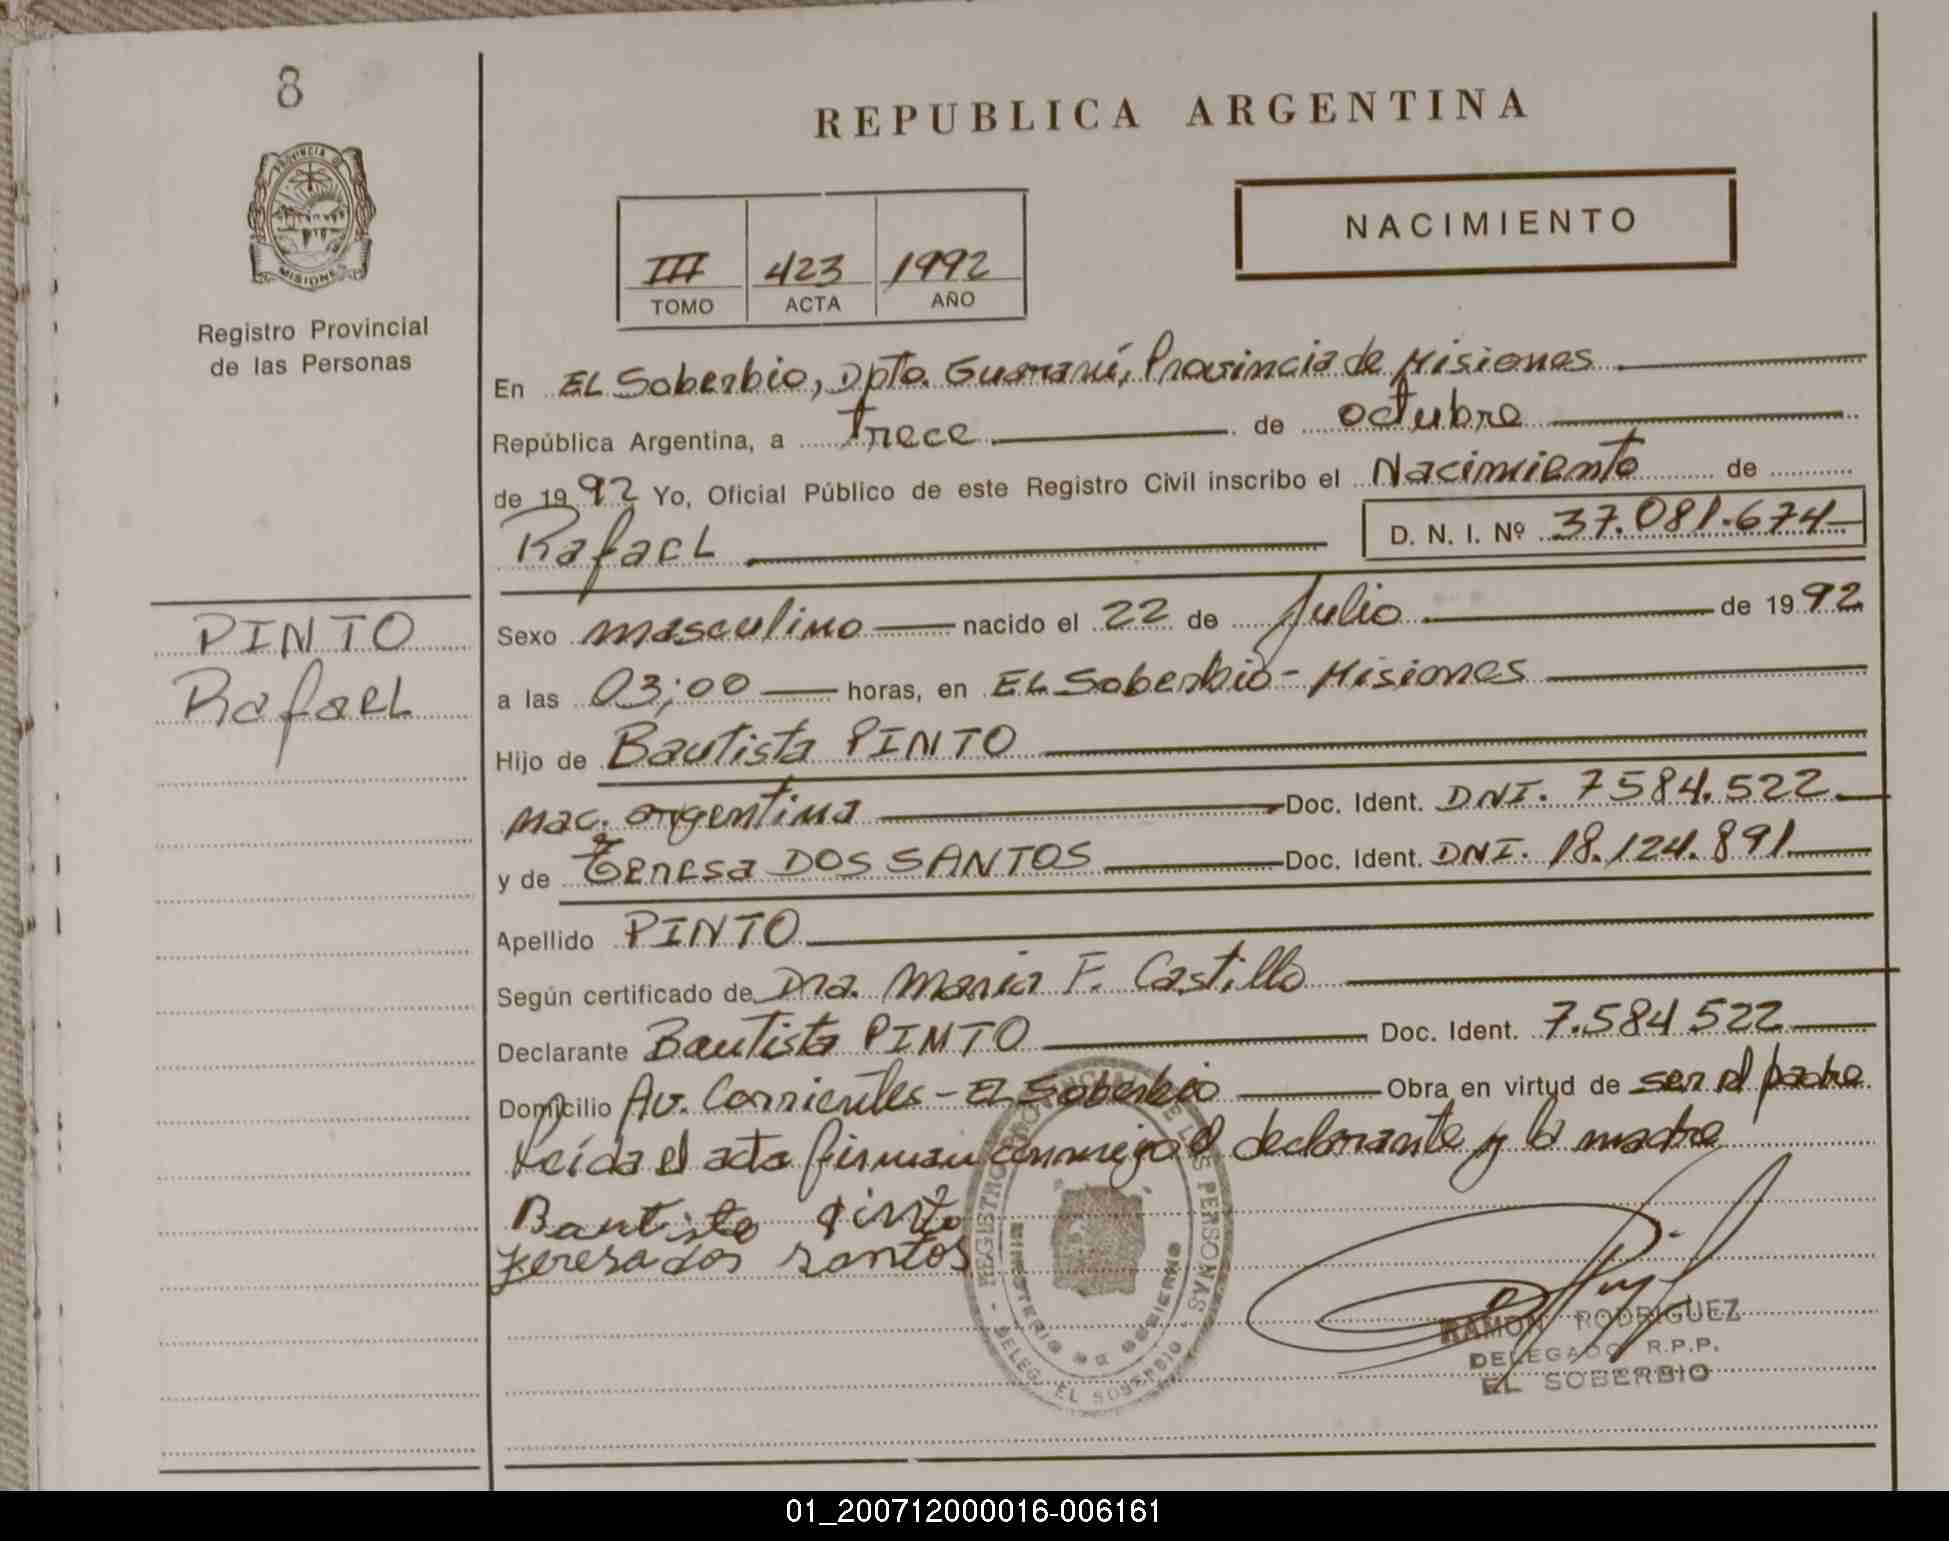 8
PROVINCIA DE
MISIONES
Registro Provincial
de las Personas
PINTO
Rafael
REPUBLICA ARGENTINA
III 423 1992
TOMO ACTA AÑO
NACIMIENTO
En El Soberbio, Dpto. Guaraní, Provincia de Misiones
República Argentina, a trece de octubre
de 1992 Yo, Oficial Público de este Registro Civil inscribo el Nacimiento de
Rafael D. N. I. Nº 37.081.674
Sexo masculino nacido el 22 de Julio de 1992
a las 03;00 horas, en El Soberbio - Misiones
Hijo de Bautista PINTO
nac. argentina Doc. Ident. DNI. 7584.522
y de Teresa DOS SANTOS Doc. Ident. DNI. 18.124.891
Apellido PINTO
Según certificado de Dra. Maria F. Castillo
Declarante Bautista PINTO Doc. Ident. 7.584 522
Domicilio Av. Corrientes - El Soberbio Obra en virtud de ser el padre
Leída el acta firman conmigo el declarante y la madre
Bautista Pinto
Teresa dos Santos
REGISTRO PROVINCIAL DE LAS PERSONAS
MINISTERIO DE GOBIERNO
- DELEG. EL SOBERBIO -
RAMON RODRIGUEZ
DELEGADO R.P.P.
EL SOBERBIO
01_200712000016-006161